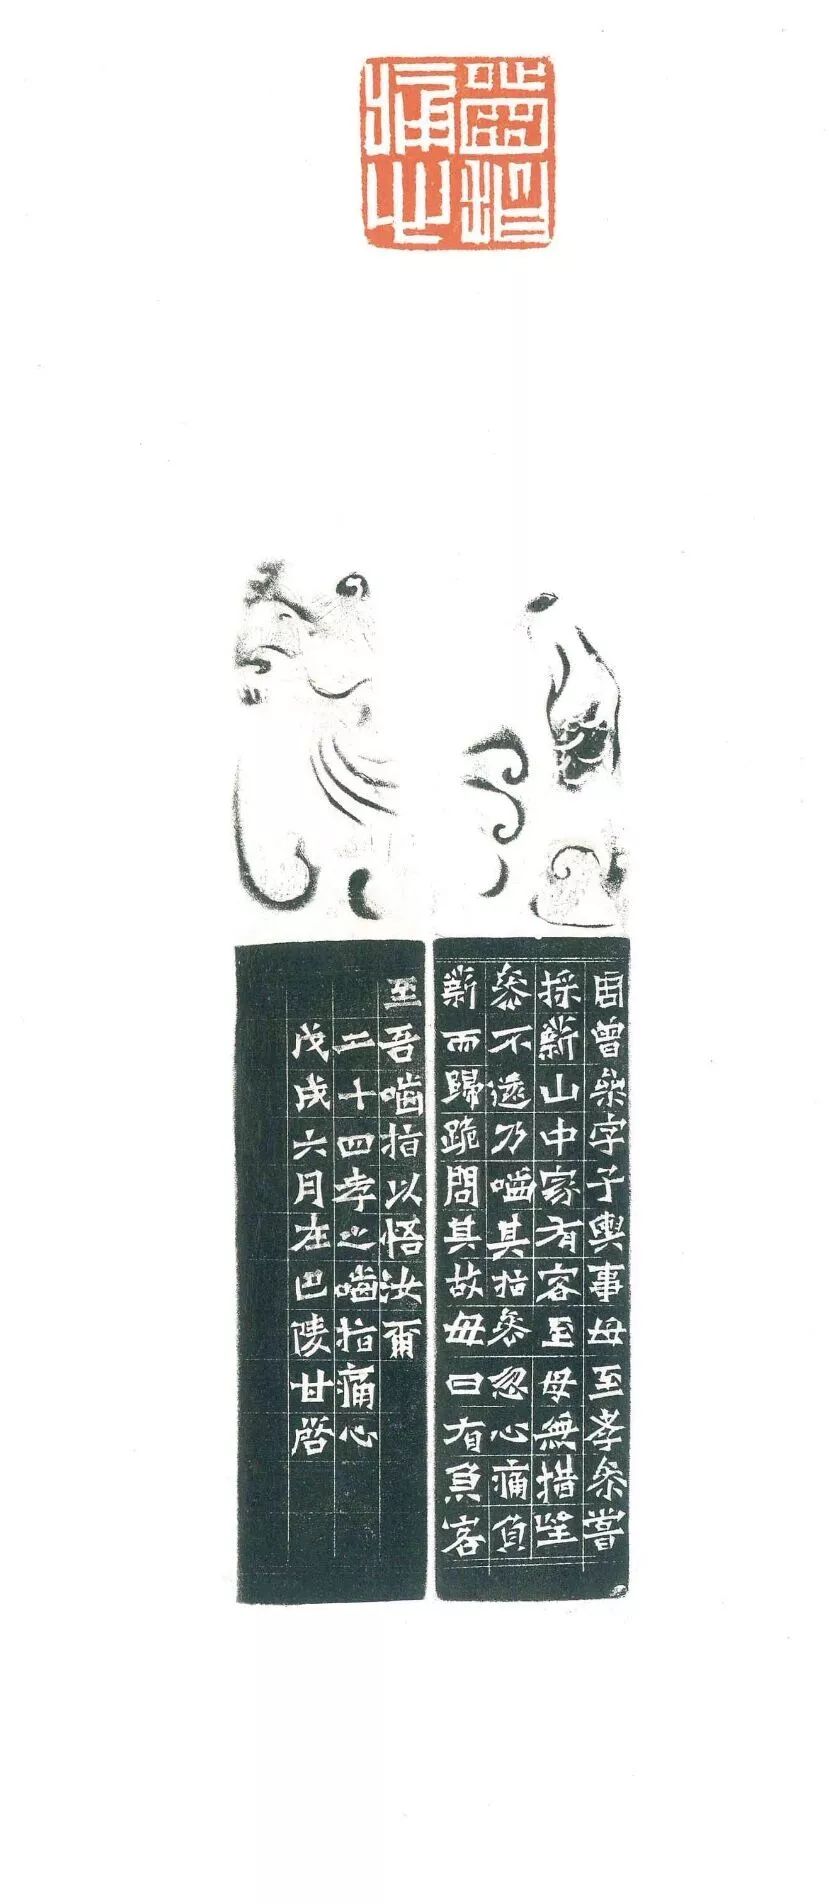 嚙指
痛心
周曾參字子輿事母至孝參嘗
採薪山中家有客至母無措望
參不還乃嚙其指參忽心痛負
薪而歸跪問其故母曰有急客
至吾嚙指以悟汝爾
二十四孝之嚙指痛心
戊戌六月在巴陵甘啓